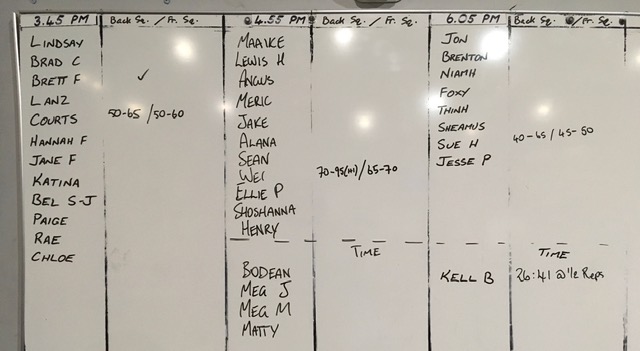 3.45 PM Back Sq. / Fr. Sq.
LINDSAY
BRAD C
BRETT F ✓
LANZ
COURTS 50-65 / 50-60
HANNAH F
JANE F
KATINA
BEL S-J
PAIGE
RAE
CHLOE
4.55 PM Back Sq. / Fr. Sq.
MAAIKE
LEWIS H
ANGUS
MERIC
JAKE
ALANA
SEAN
WEI 70-95(M) / 65-70
ELLIE P
SHOSHANNA
HENRY
TIME
BODEAN
MEG J
MEG M
MATTY
6.05 PM Back Sq. / Fr. Sq.
JON
BRENTON
NIAMH
FOXY
THINH
SHEAMUS
SUE H 40-45 / 45-50
JESSE P
TIME
KELL B 26:41 Reps